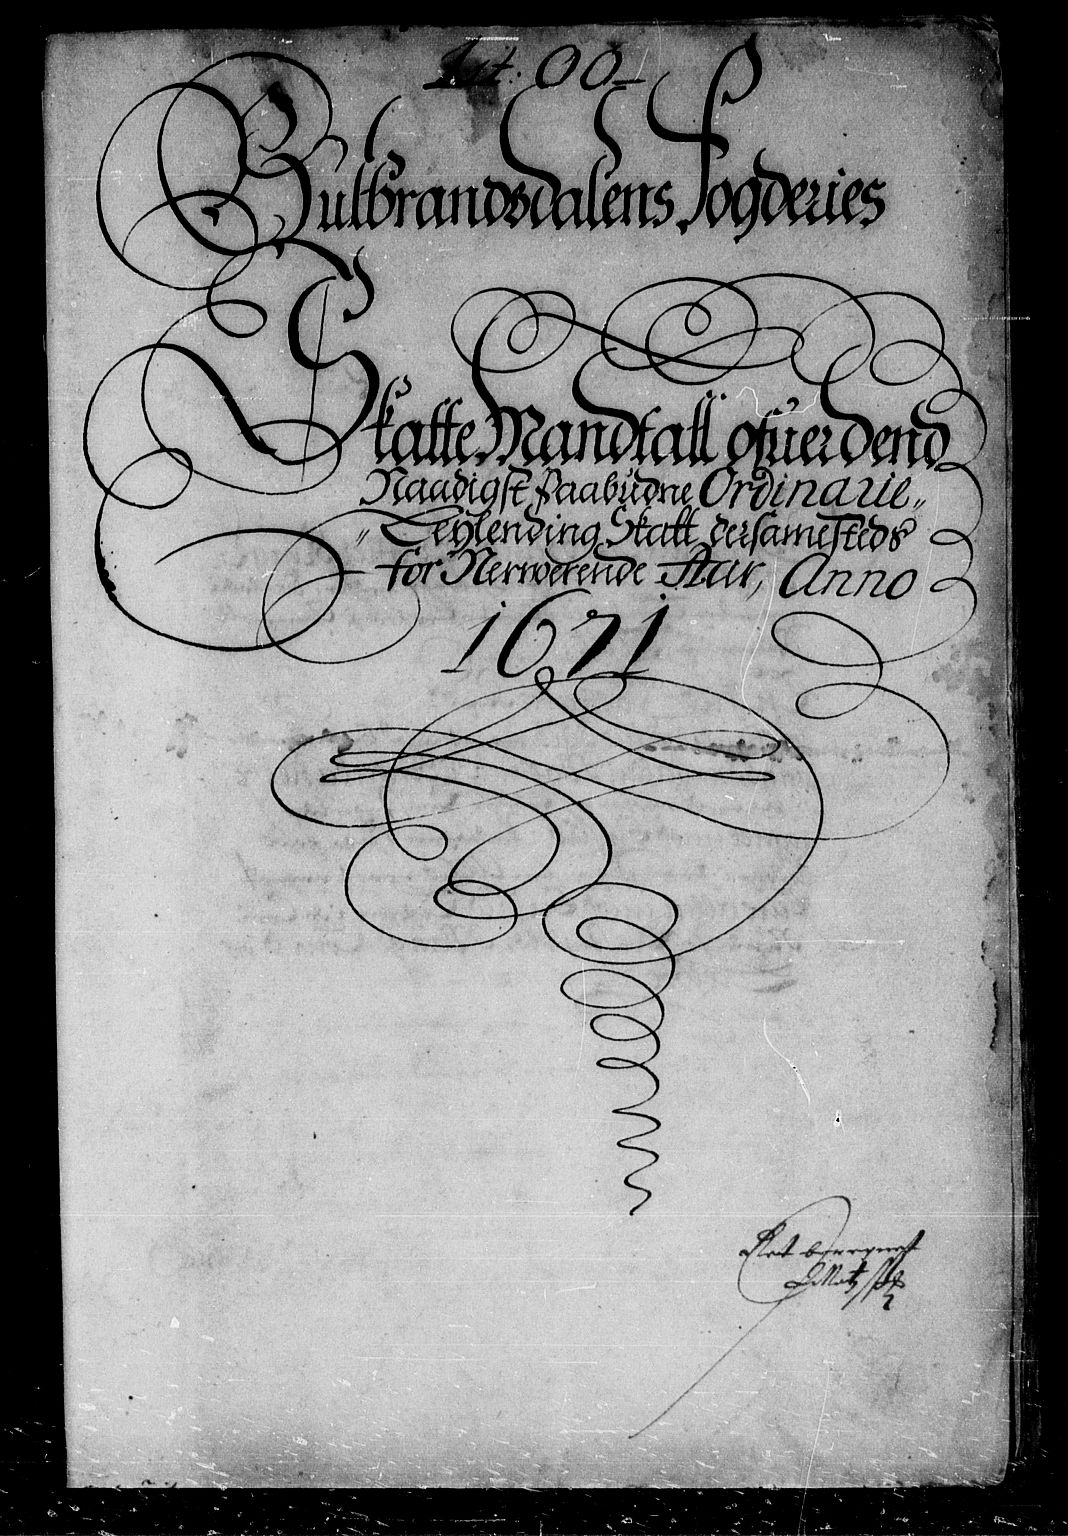 Lit: OO
Gulbrandsdalens Fogderies
Skatte Mandtall ofuer dend
Naadigst paabudne Ordinarie
Leylending Skatt dersamesteds
for Nerwerende Aar, Anno
1671